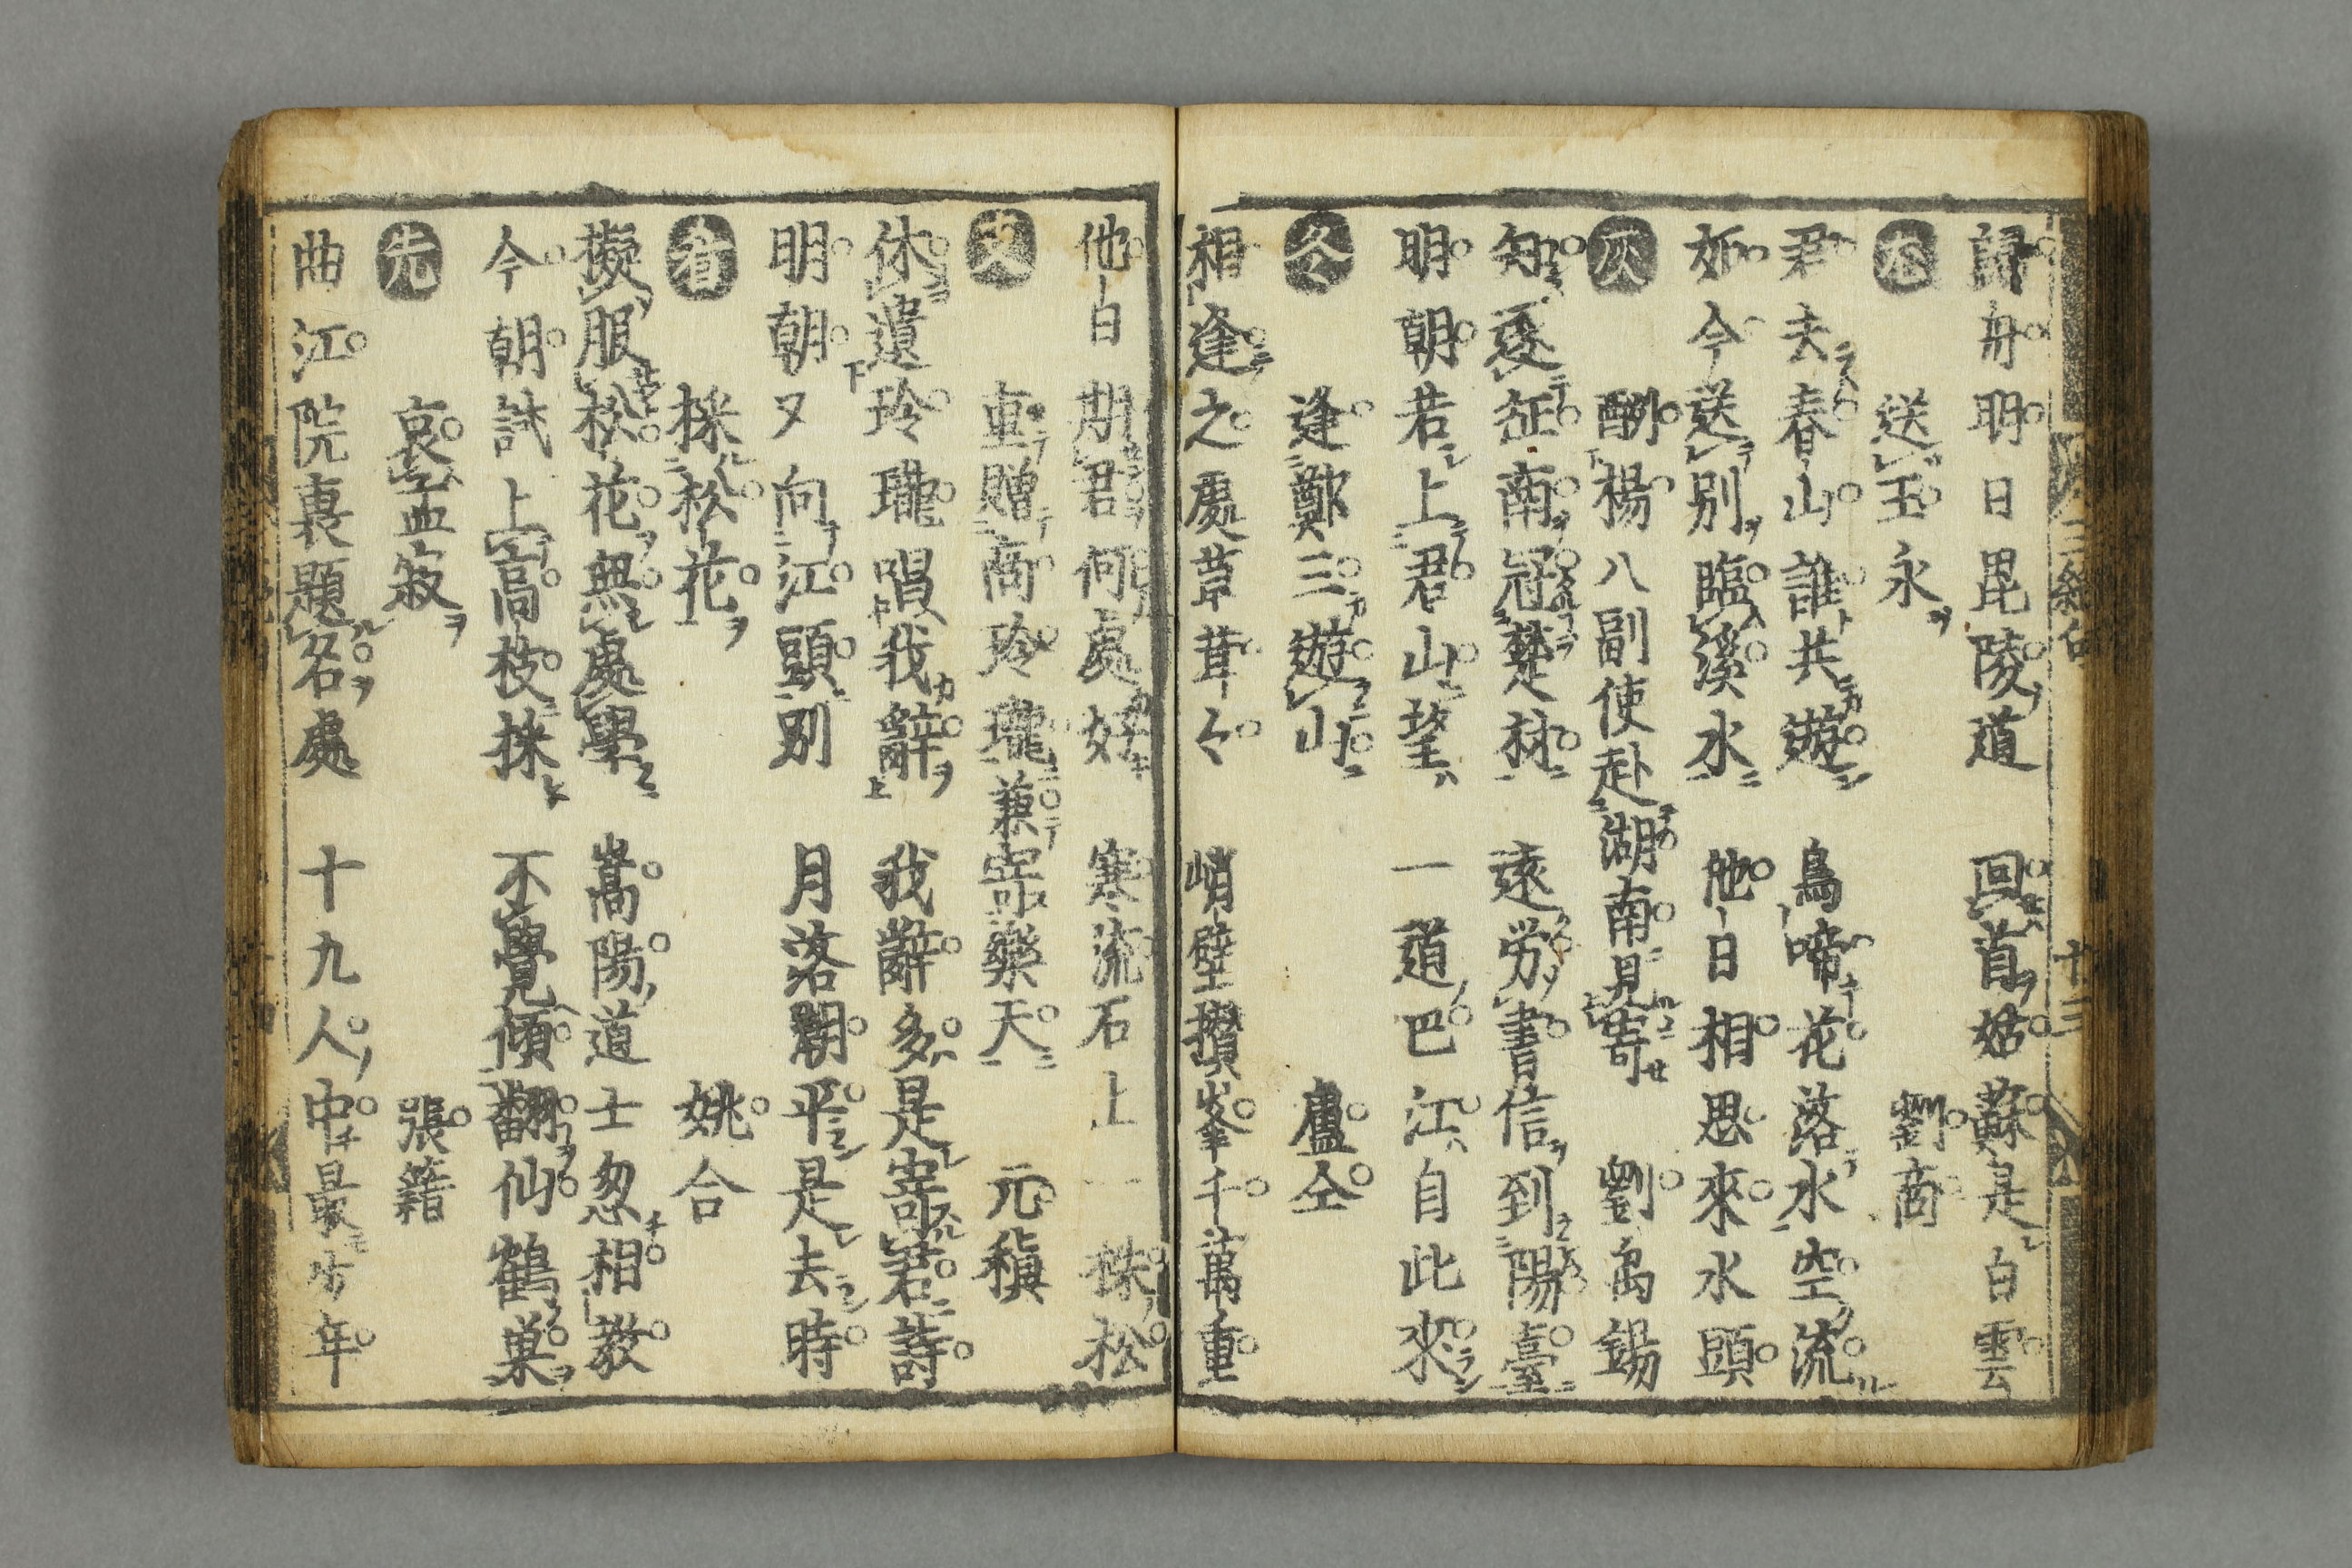 歸舟明日毘陵道　回首姑蘇是白雲
送王永ヲ　劉商
君去春山誰共遊　鳥啼花落水空流
如今送別臨溪水　他日相思來水頭
灰　酬楊八副使赴湖南見寄　劉禹錫
知逐征南冠楚材　遠労書信到陽臺
明朝若上君山望　一道巴江自此來
冬　逢鄭三遊山　盧仝
相逢之處茸茸々　峭壁攢峯千萬重
他日期君何處好　寒流石上一株松
支　重贈商玲瓏兼寄樂天　元稹
休遣玲瓏唱我辭　我辭多是寄君詩
明朝又向江頭別　月落潮平是去時
肴　採松花　姚合
擬服松花無處學　嵩陽道士忽相教
今朝試上高枝採　不覺傾翻仙鶴巢
先　哀孟寂　張籍
曲江院裏題名處　十九人中最少年
三絶句
十三